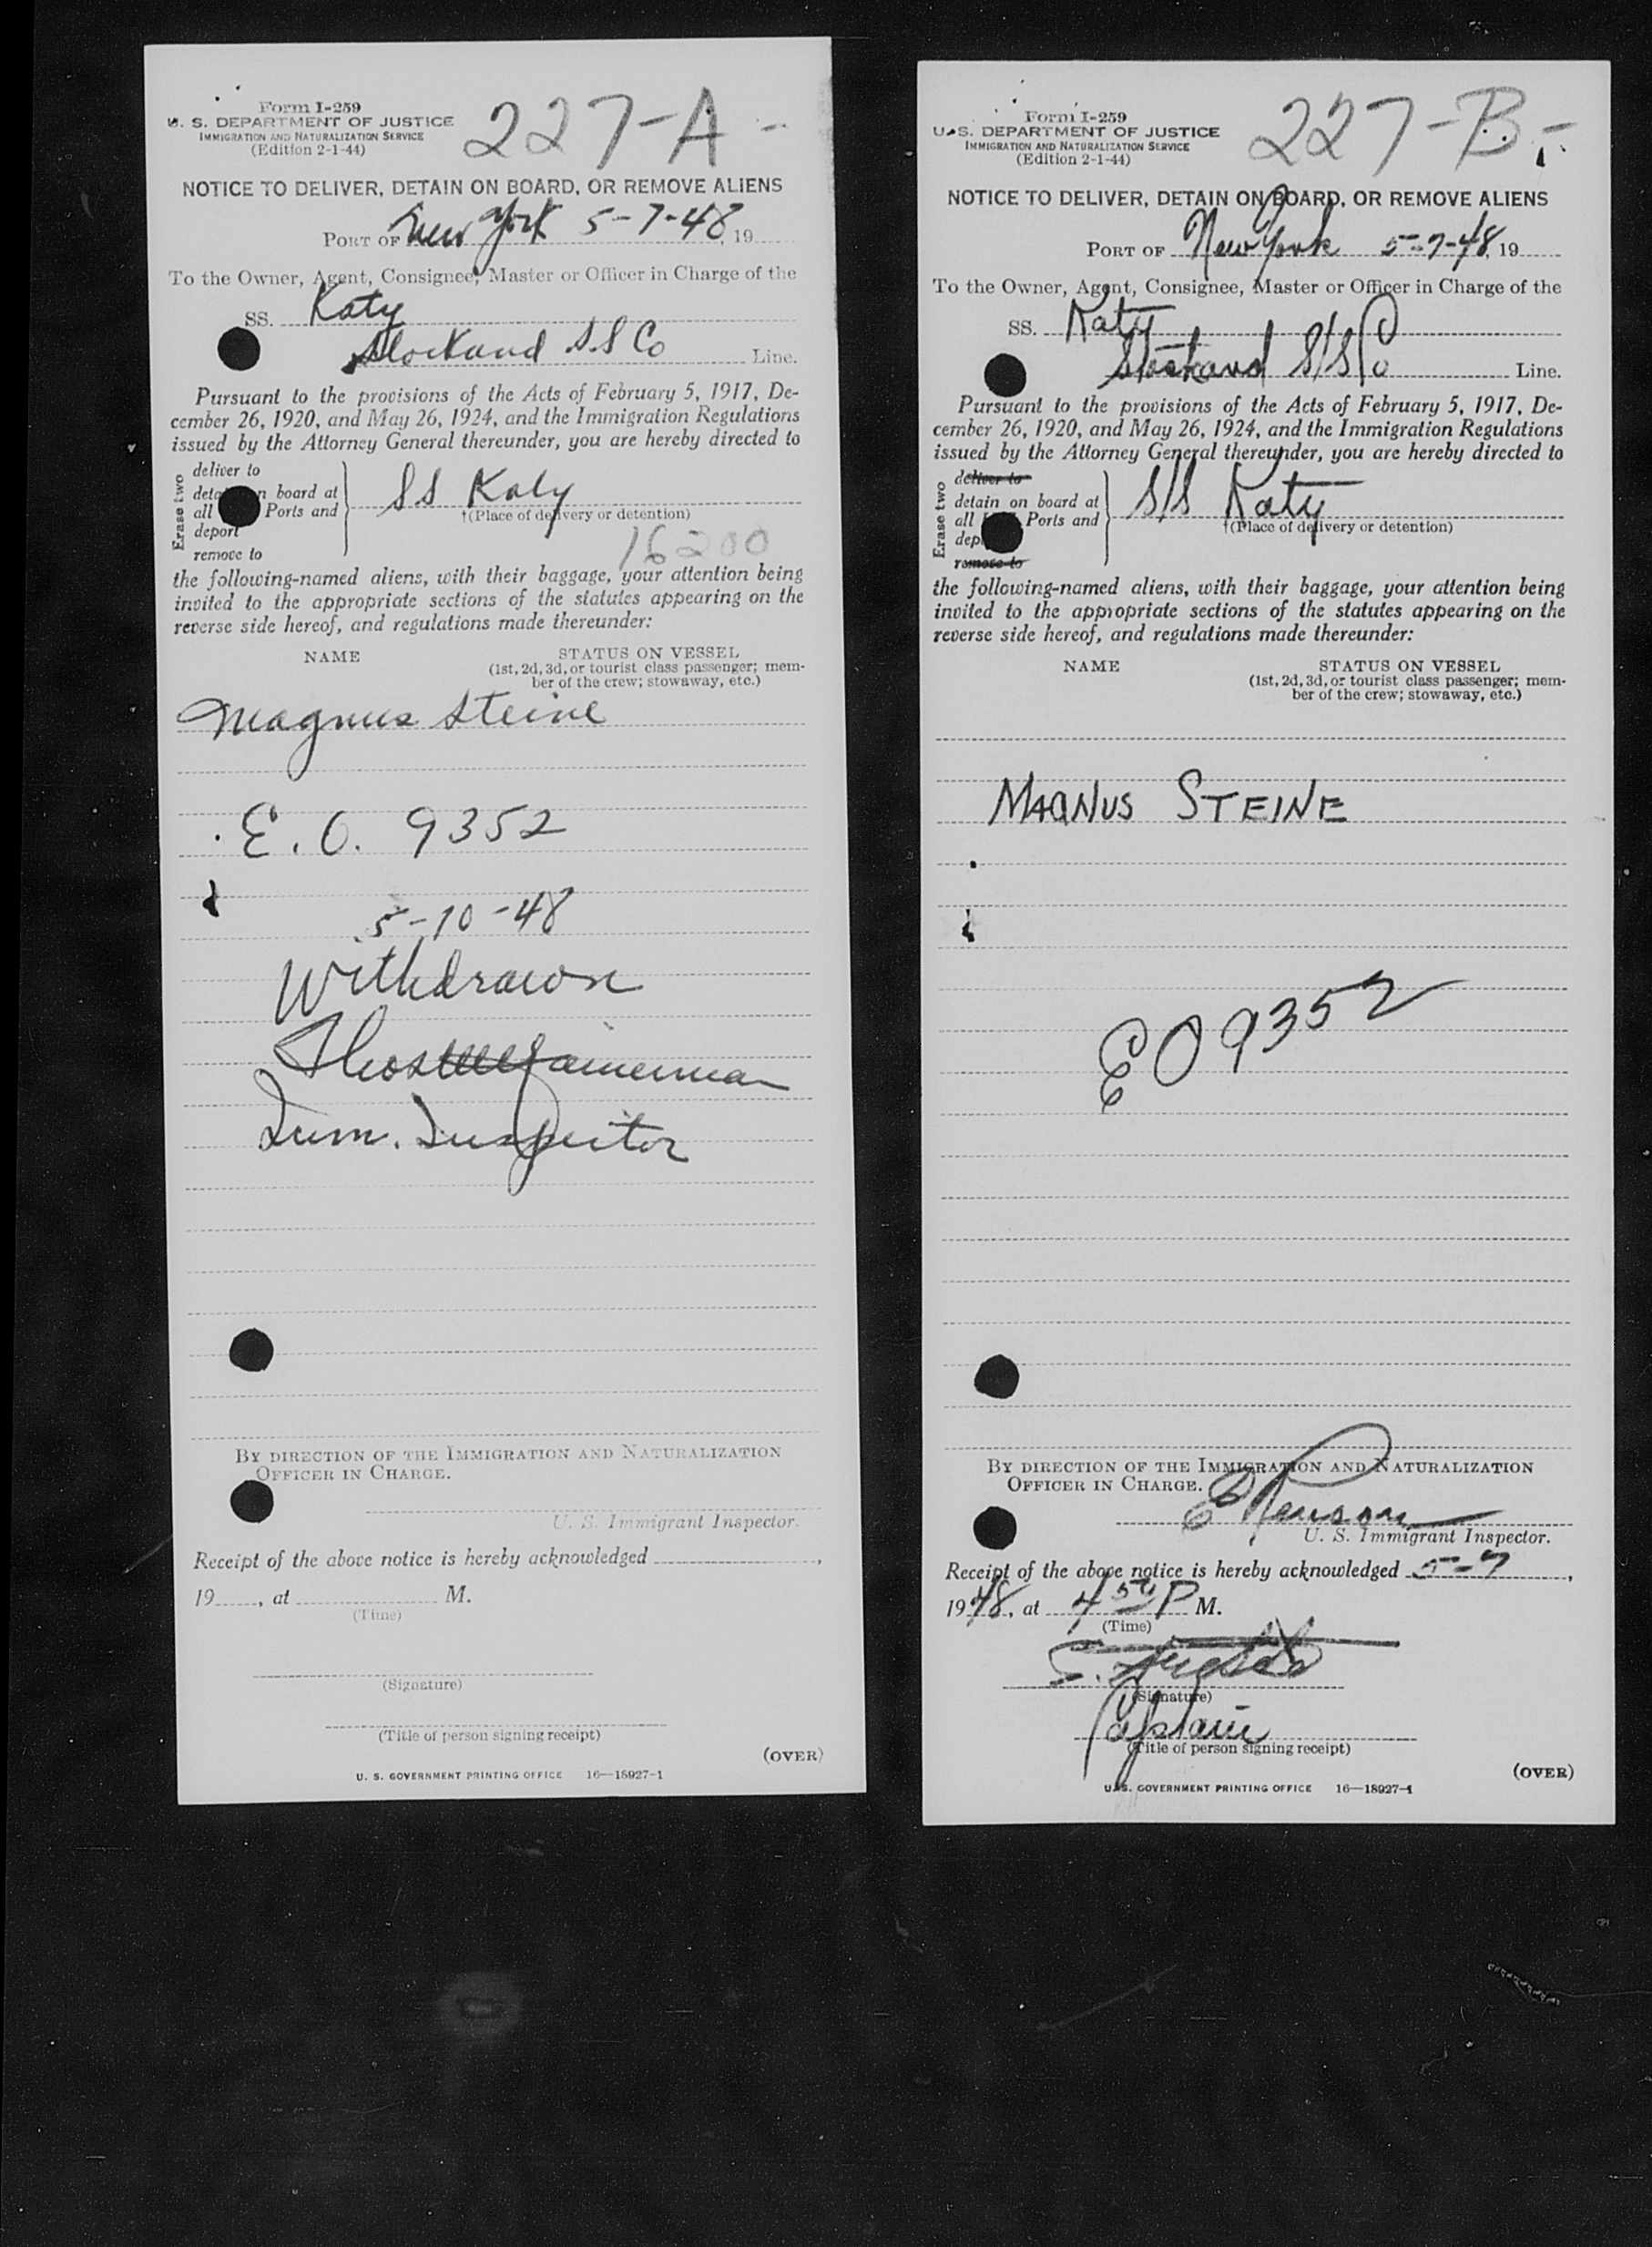 Form I-259
U. S. DEPARTMENT OF JUSTICE
IMMIGRATION AND NATURALIZATION SERVICE
(Edition 2-1-44)
227-A -
NOTICE TO DELIVER, DETAIN ON BOARD, OR REMOVE ALIENS
PORT OF New York 5-7-48, 19
To the Owner, Agent, Consignee, Master or Officer in Charge of the
SS. Katy
Stockard S.S Co Line.
Pursuant to the provisions of the Acts of February 5, 1917, De-
cember 26, 1920, and May 26, 1924, and the Immigration Regulations
issued by the Attorney General thereunder, you are hereby directed to
Erase two
deliver to
n board at
all Ports and
deport
remove to
SS Katy
†(Place of delivery or detention)
16200
the following-named aliens, with their baggage, your attention being
invited to the appropriate sections of the statutes appearing on the
reverse side hereof, and regulations made thereunder:
NAME
STATUS ON VESSEL
(1st, 2d, 3d, or tourist class passenger; mem-
ber of the crew; stowaway, etc.)
Magnus Steine
E. O. 9352
5-10-48
Withdrawn
Imm. Inspector
BY DIRECTION OF THE IMMIGRATION AND NATURALIZATION
OFFICER IN CHARGE.
U. S. Immigrant Inspector.
Receipt of the above notice is hereby acknowledged ,
19 , at M.
(Time)
(Signature)
(Title of person signing receipt)
(OVER)
U. S. GOVERNMENT PRINTING OFFICE 16—18927-1
Form I-259
U. S. DEPARTMENT OF JUSTICE
IMMIGRATION AND NATURALIZATION SERVICE
(Edition 2-1-44)
227-B -
NOTICE TO DELIVER, DETAIN ON BOARD, OR REMOVE ALIENS
PORT OF New York 5-7-48, 19
To the Owner, Agent, Consignee, Master or Officer in Charge of the
SS. Katy
Stockard S/S Co Line.
Pursuant to the provisions of the Acts of February 5, 1917, De-
cember 26, 1920, and May 26, 1924, and the Immigration Regulations
issued by the Attorney General thereunder, you are hereby directed to
Erase two
deliver to
detain on board at
all Ports and
remove to
S/S Katy
†(Place of delivery or detention)
the following-named aliens, with their baggage, your attention being
invited to the appropriate sections of the statutes appearing on the
reverse side hereof, and regulations made thereunder:
NAME
STATUS ON VESSEL
(1st, 2d, 3d, or tourist class passenger; mem-
ber of the crew; stowaway, etc.)
MAGNUS STEINE
EO 9352
BY DIRECTION OF THE IMMIGRATION AND NATURALIZATION
OFFICER IN CHARGE.
U. S. Immigrant Inspector.
Receipt of the above notice is hereby acknowledged 5-7,
1948, at 4 50 P M.
(Time)
(Signature)
Captain
(Title of person signing receipt)
(OVER)
U. S. GOVERNMENT PRINTING OFFICE 16—18927-1